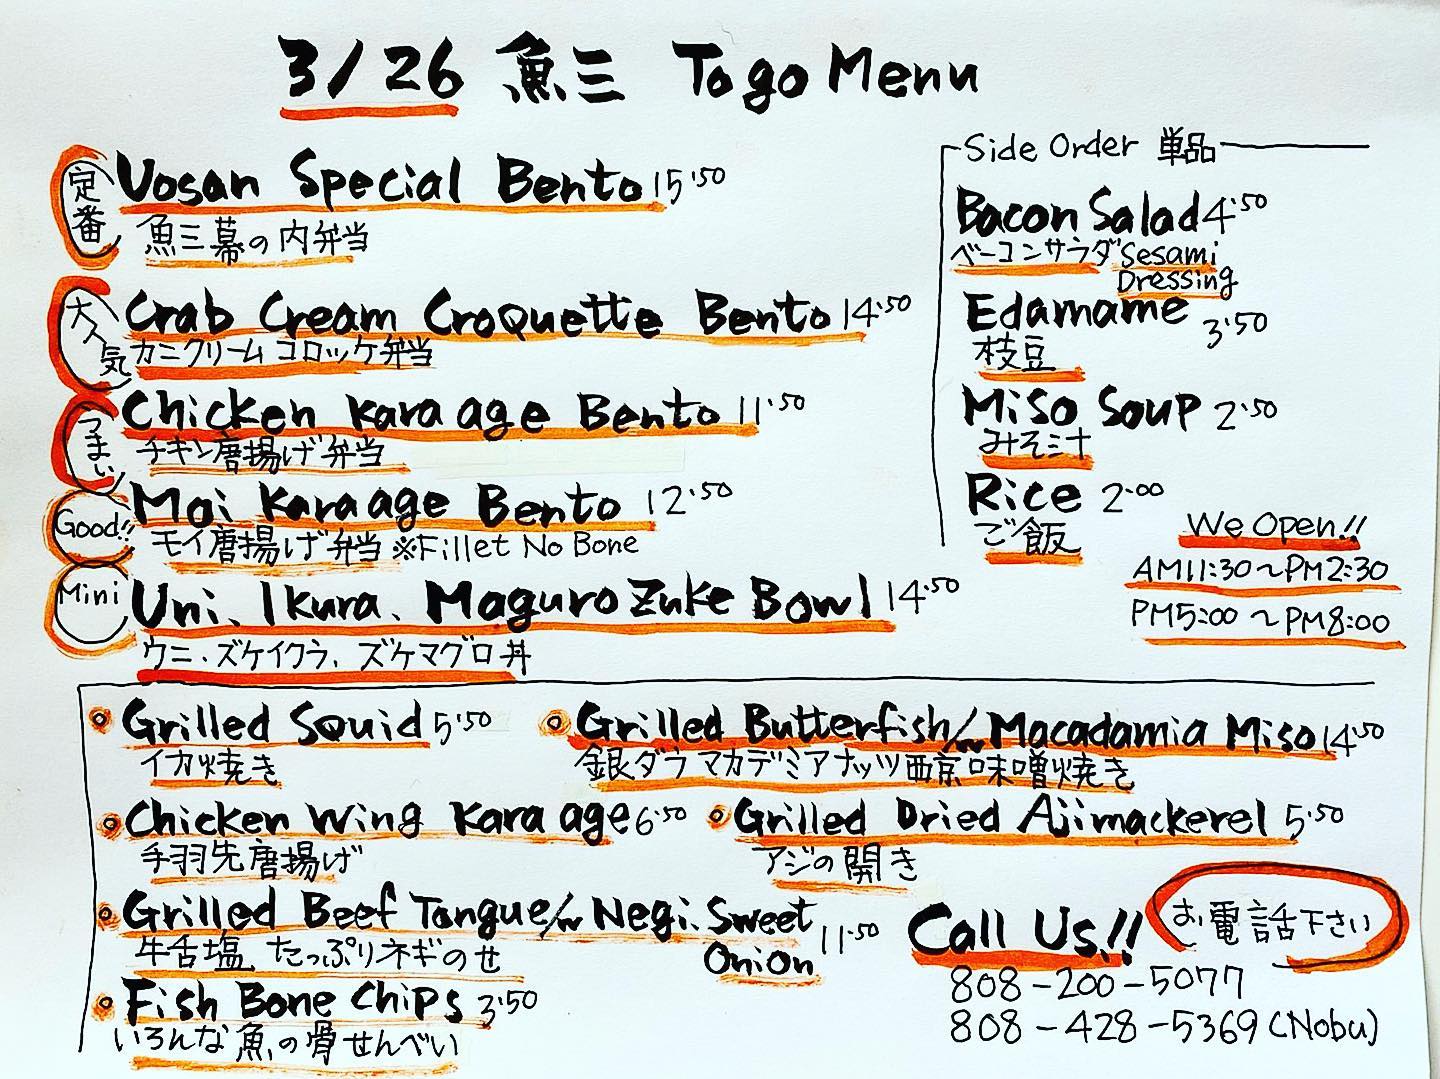 3/26 魚三 To go Menu
定番
Uosan Special Bento 15.50
魚三幕の内弁当
大人気
Crab Cream Croquette Bento 14.50
カニクリームコロッケ弁当
うまい
Chicken Kara age Bento 11.50
チキン唐揚げ弁当
Good!!
Moi Kara age Bento 12.50
モイ唐揚げ弁当 ※Fillet No Bone
Mini
Uni、Ikura、Maguro Zuke Bowl 14.50
ウニ・ズケイクラ、ズケマグロ丼
Side Order 単品
Bacon Salad 4.50
ベーコンサラダ Sesami
Dressing
Edamame 3.50
枝豆
Miso Soup 2.50
みそ汁
Rice 2.00
ご飯
We Open!!
AM11:30～PM2:30
PM5:00～PM8:00
Grilled Squid 5.50
イカ焼き
Grilled Butterfish/w Macadamia Miso 14.50
銀ダラマカデミアナッツ西京味噌焼き
Chicken Wing Kara age 6.50
手羽先唐揚げ
Grilled Dried Ajimackerel 5.50
アジの開き
Grilled Beef Tongue/w Negi. Sweet
Onion 11.50
牛舌塩 たっぷりネギのせ
Fish Bone Chips 3.50
いろんな魚の骨せんべい
Call Us!!
お電話下さい
808-200-5077
808-428-5369 (Nobu)